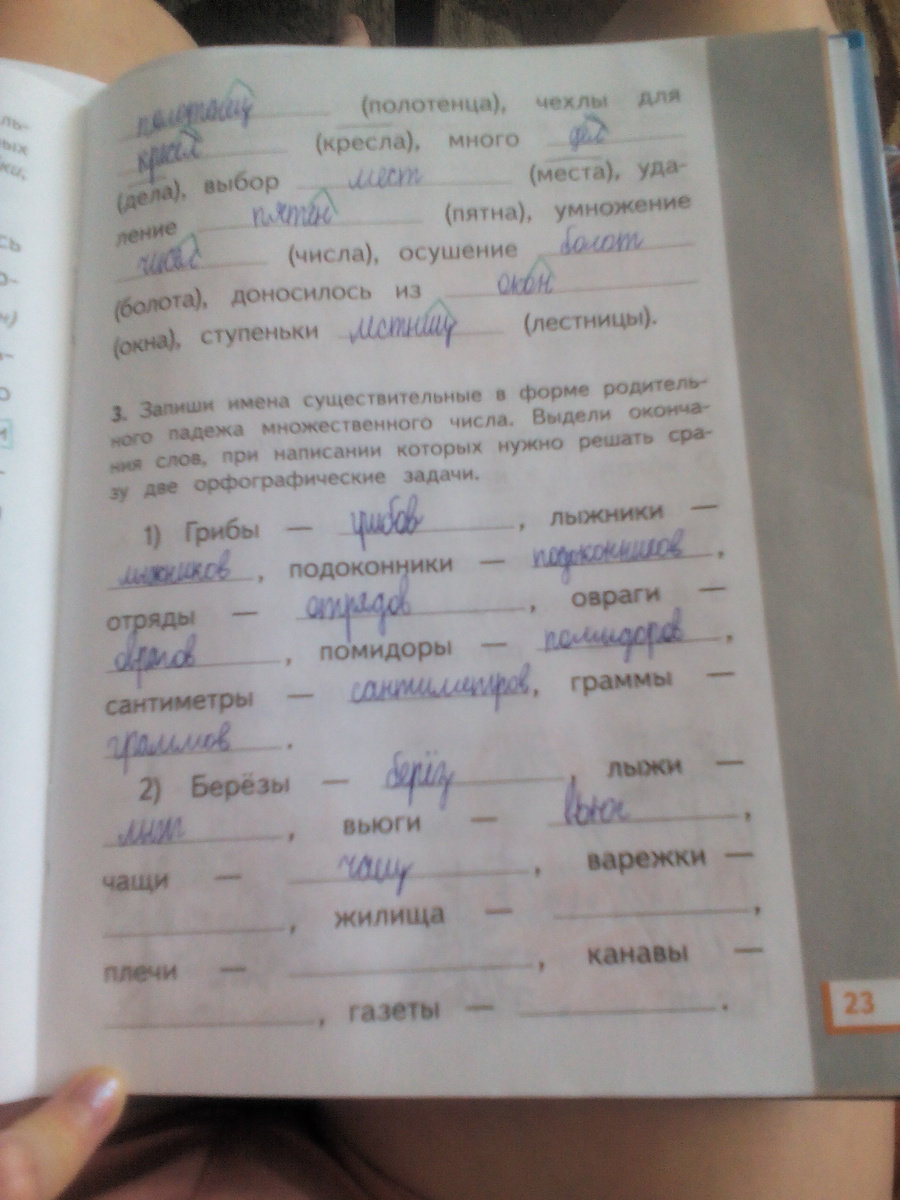 полотенец (полотенца), чехлы для
кресел (кресла), много дел
(дела), выбор мест (места), уда-
ление пятен (пятна), умножение
чисел (числа), осушение болот
(болота), доносилось из окон
(окна), ступеньки лестниц (лестницы).
3. Запиши имена существительные в форме родитель-
ного падежа множественного числа. Выдели оконча-
ния слов, при написании которых нужно решать сра-
зу две орфографические задачи.
1) Грибы — грибов, лыжники —
лыжников, подоконники — подоконников,
отряды — отрядов, овраги —
оврагов, помидоры — помидоров,
сантиметры — сантиметров, граммы —
граммов.
2) Берёзы — берёз, лыжи —
лыж, вьюги — вьюг,
чащи — чащ, варежки —
, жилища — ,
плечи — , канавы —
, газеты — .
23